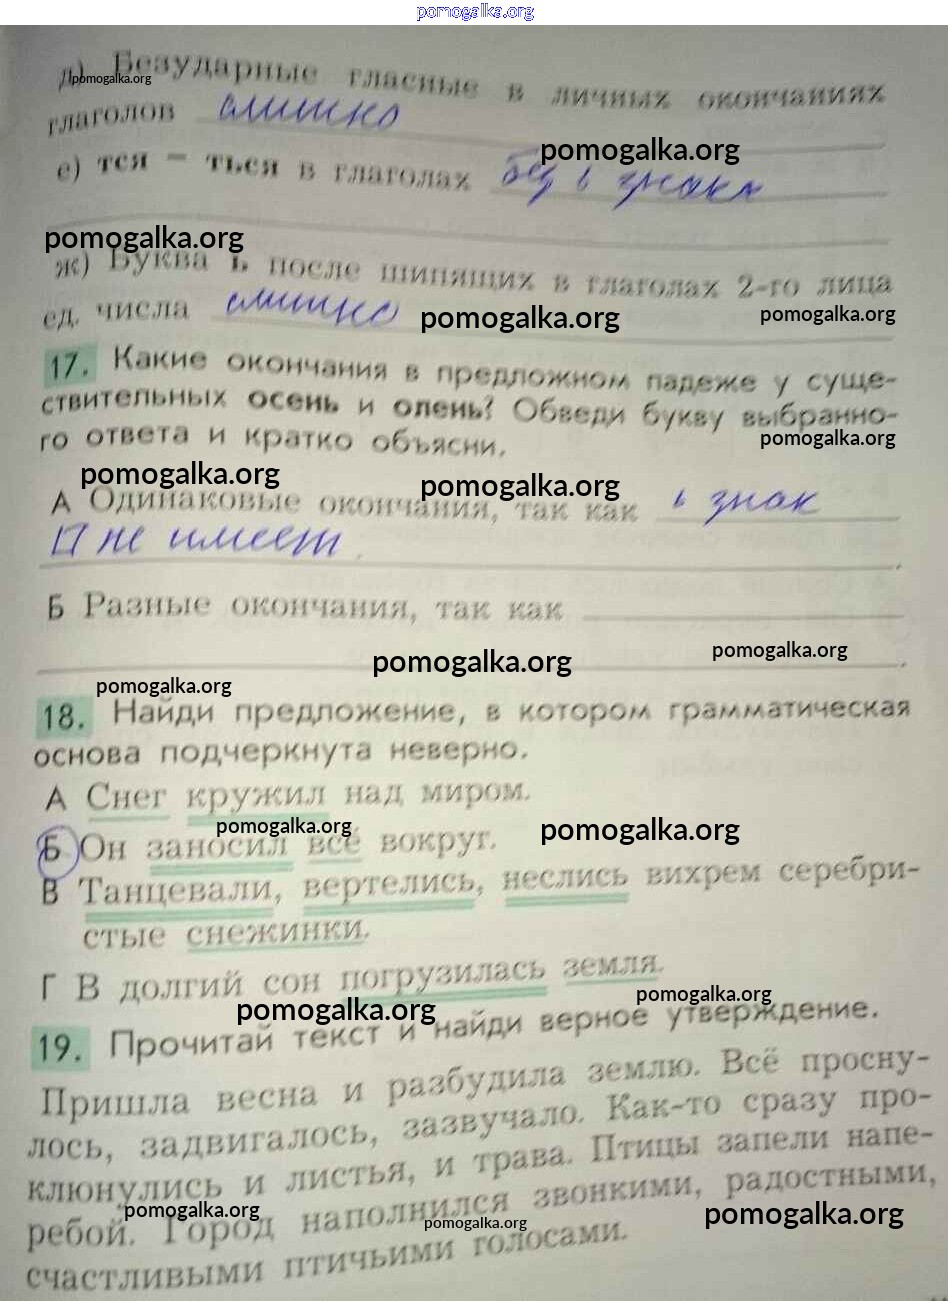 pomogalka.org
д) Безударные гласные в личных окончаниях
pomogalka.org
глаголов слишко
pomogalka.org
е) тся – ться в глаголах без ь знака
pomogalka.org
ж) Буква ь после шипящих в глаголах 2-го лица
ед. числа слишко
pomogalka.org
pomogalka.org
17. Какие окончания в предложном падеже у суще-
ствительных осень и олень? Обведи букву выбранно-
го ответа и кратко объясни.
pomogalka.org
pomogalka.org
pomogalka.org
А Одинаковые окончания, так как ь знак
не имеет.
Б Разные окончания, так как
pomogalka.org
pomogalka.org
pomogalka.org
18. Найди предложение, в котором грамматическая
основа подчеркнута неверно.
А Снег кружил над миром.
pomogalka.org
pomogalka.org
Б Он заносил всё вокруг.
В Танцевали, вертелись, неслись вихрем серебри-
стые снежинки.
Г В долгий сон погрузилась земля.
pomogalka.org
pomogalka.org
19. Прочитай текст и найди верное утверждение.
Пришла весна и разбудила землю. Всё просну-
лось, задвигалось, зазвучало. Как-то сразу про-
клюнулись и листья, и трава. Птицы запели напе-
ребой. Город наполнился звонкими, радостными,
pomogalka.org
pomogalka.org
pomogalka.org
счастливыми птичьими голосами.